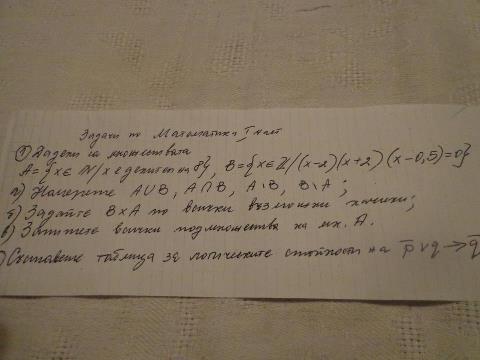 Задачи по Математика I част
① Дадени са множествата
A={x∈ℕ/x е делител на 8}, B={x∈ℤ/(x-2)(x+2)(x-0,5)=0}
а) Намерете A∪B, A∩B, A\B, B\A;
б) Задайте B×A по всички възможни начини;
в) Запишете всички подмножества на мн. A.
) Съставете таблица за логическите стойности на p̅∨q→q̅